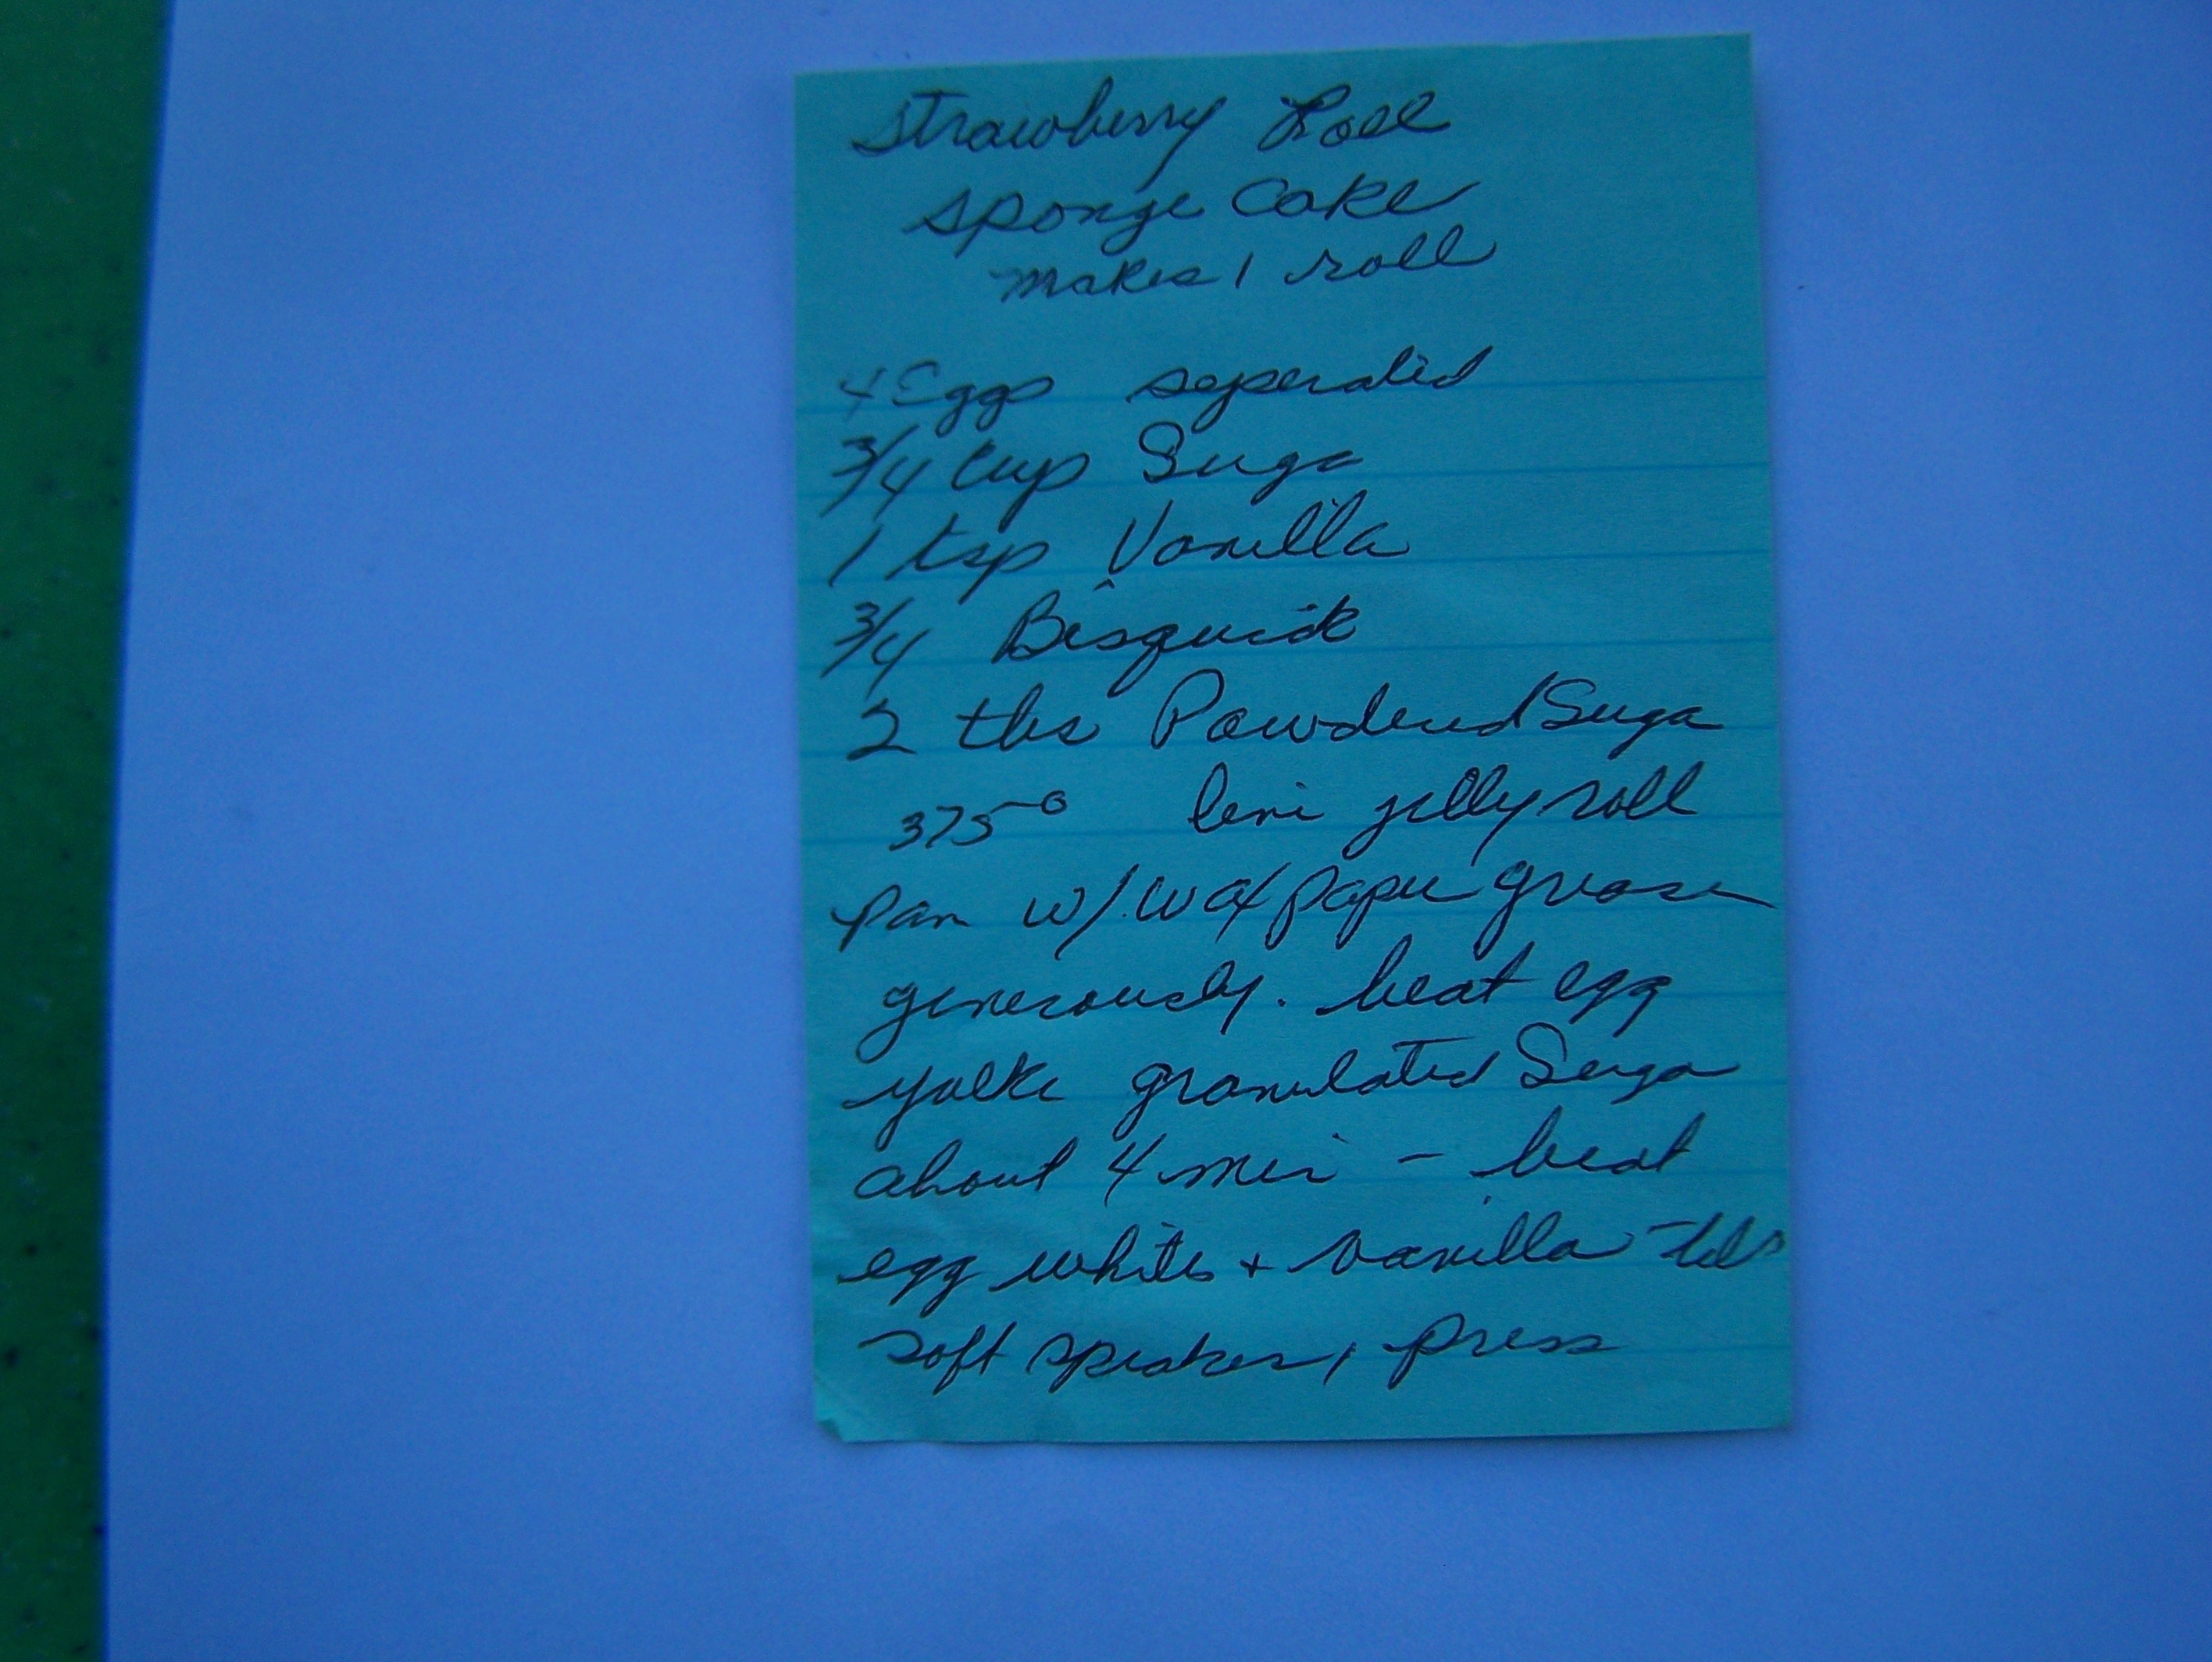 Strawberry Roll
Sponge Cake
makes 1 roll
4 Eggs seperated
3/4 cup Suga
1 tsp Vanilla
3/4 Bisquick
2 tbs Powdered Suga
375° line jelly roll
pan w/ wax paper grease
generously. beat egg
yolks granulated Suga
about 4 min - beat
egg whites + vanilla -
soft press